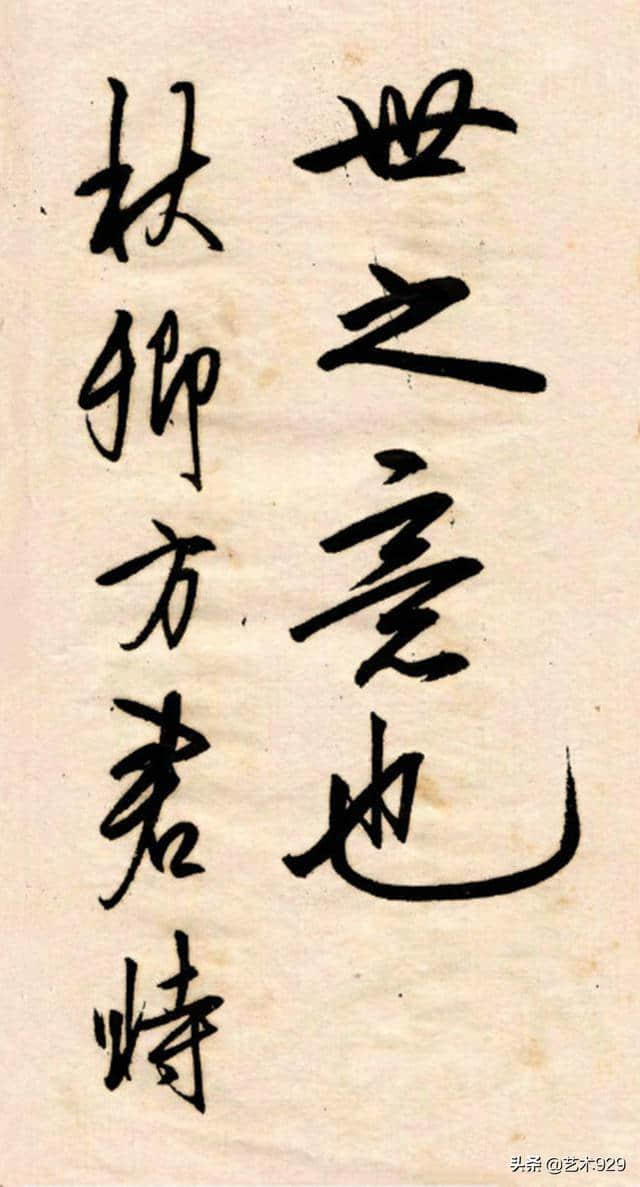 世之意也
卿方君時
头条 @艺术929